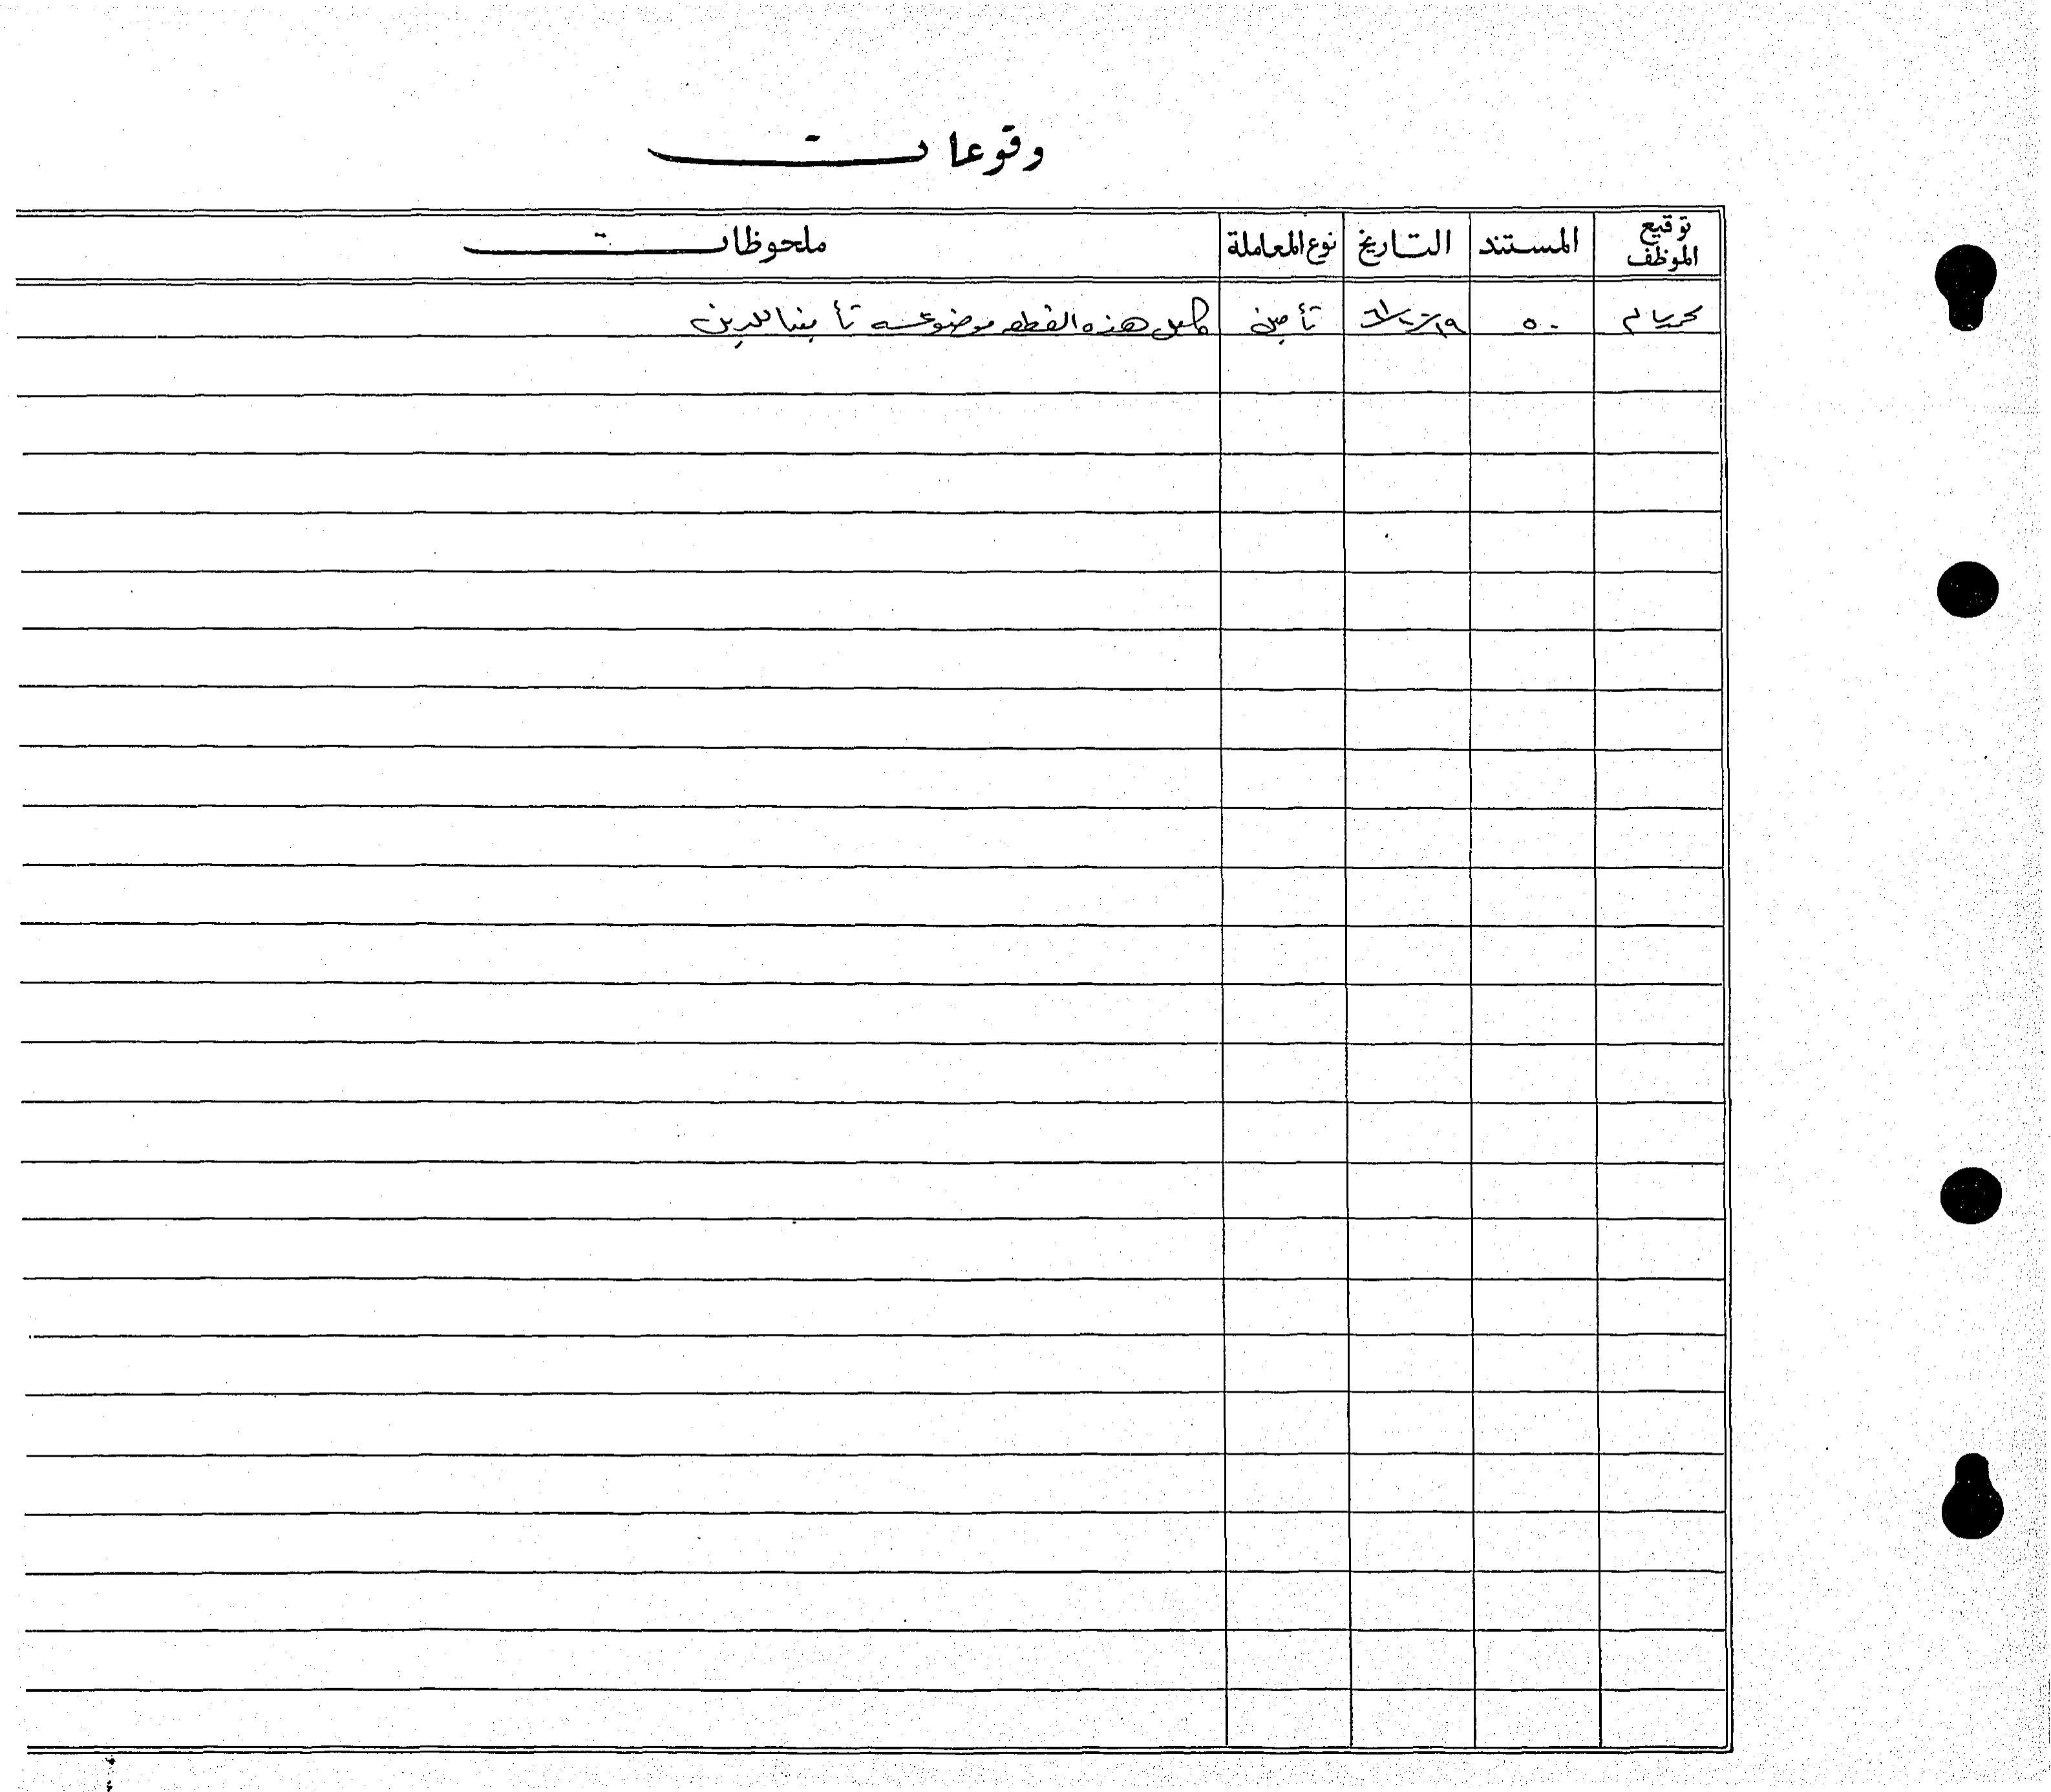 وقوعات
توقيع الموظف المستند التاريخ نوع المعاملة ملحوظات
٥٠ تأمين كامل هذه القطعه موضوعه تأمينا للدين